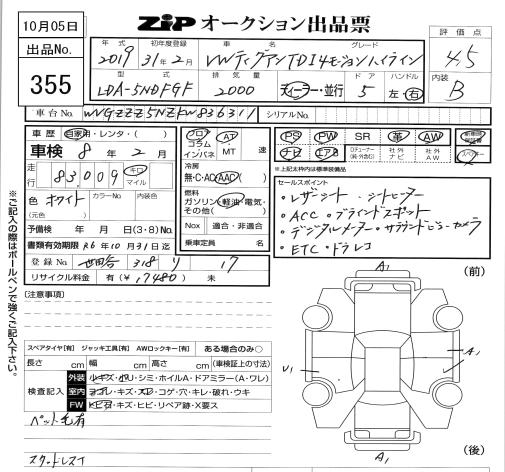 10月05日
出品No.
355
ZIP オークション出品票
評価点
4.5
内装
B
年式 初年度登録 車名 グレード
2019 31年2月 VWティグアンTDI4モーションハイライン
型式 排気量 ドア ハンドル
LDA-5NDFGF 2000 ディーラー・並行 5 左・右
車台No. WVGZZZ5NZFW836311 シリアルNo.
車歴 自家用・レンタ・( )
車検 8年 2月
走行 83,009 キロ マイル
色 ホワイト カラーNo. 内装色
(元色)
予備検 年 月 日(3・8)No.
書類有効期限 R6年10月31日迄
登録No. 世田谷 318 り 17
リサイクル料金 有(¥17480) 未
フロア コラム インパネ AT MT 速
冷房
無・C・AC・AAC
燃料
ガソリン・軽油・電気・その他( )
Nox 適合・非適合
乗車定員 名
PS PW SR 革 AW
ナビ エアB Dチューナー (純・外含む) 社外ナビ 社外AW
※上記太枠内は標準装備品
セールスポイント
・レザーシート ・シートヒーター
・ACC ・ブラインドスポット
・デジタルメーター ・サラウンドビューカメラ
・ETC ・ドラレコ
※ご記入の際はボールペンで強くご記入下さい。
[注意事項]
スペアタイヤ[有] ジャッキ工具[有] AWロックキー[有] ある場合のみ○
長さ cm 幅 cm 高さ cm (車検証上の寸法)
検査記入
外装 少キズ・凹リ・シミ・ホイルA・ドアミラー(A・ワレ)
室内 ヨゴレ・キズ・スレ・コゲ・穴・キレ・破れ・ウキ
FW トビ石・キズ・ヒビ・リペア跡・X要ス
ペット毛有
スタッドレスイ
(前)
A1
U1
A1
A1
(後)